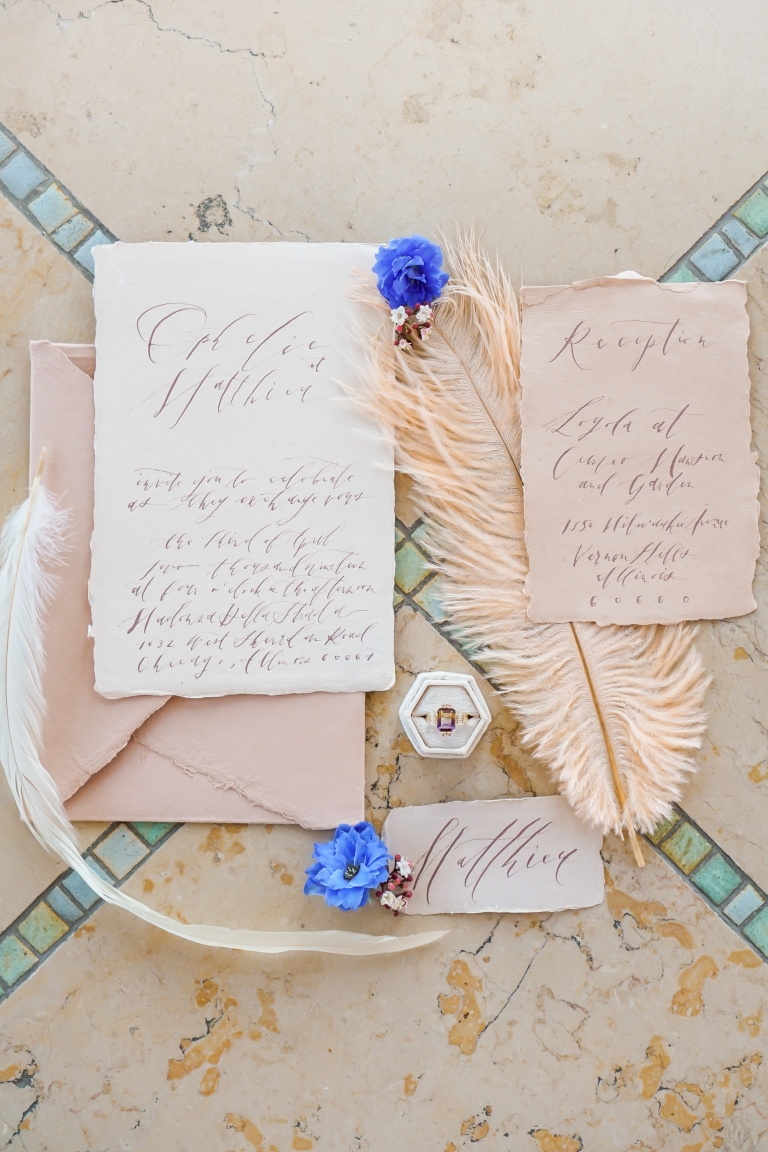 Ophelie
et
Matthieu
invite you to celebrate
as they exchange vows
the third of April
two thousand nineteen
at four o'clock in the afternoon
Madonna Della Strada
1032 West Sheridan Road
Chicago, Illinois 60061
Reception
Loyola at
Cuneo Mansion
and Garden
1350 Milwaukee Avenue
Vernon Hills
Illinois
60660
Matthieu